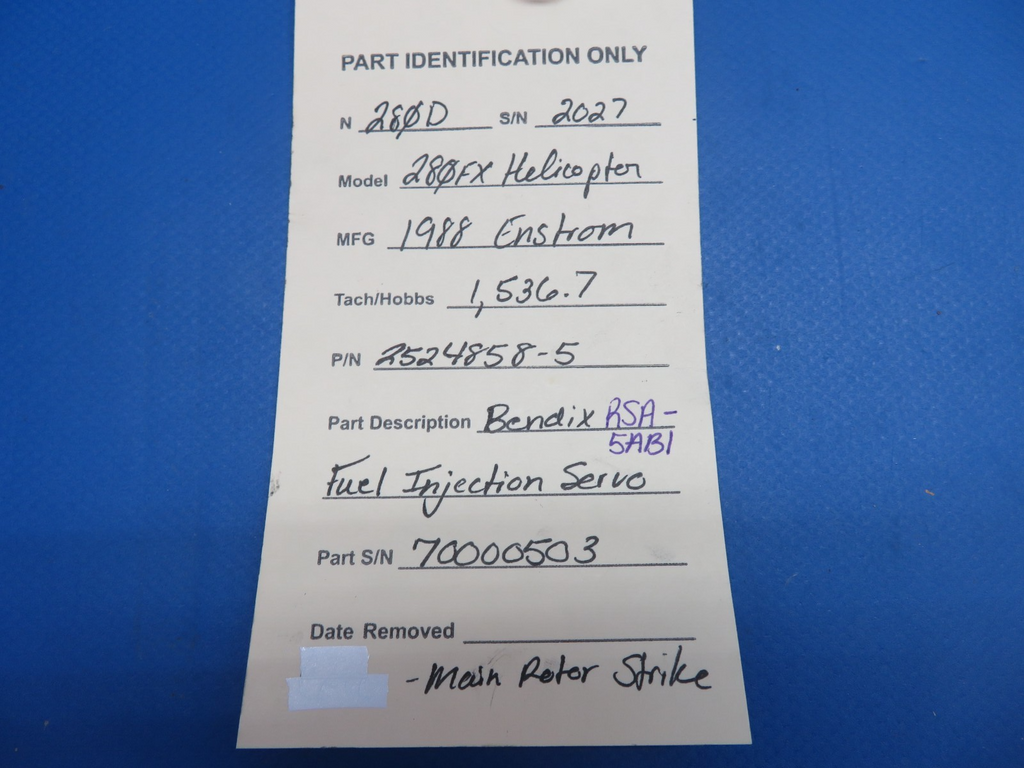 PART IDENTIFICATION ONLY
N 28ØD S/N 2027
Model 28ØFX Helicopter
MFG 1988 Enstrom
Tach/Hobbs 1,536.7
P/N 2524858-5
Part Description Bendix RSA-
5AB1
Fuel Injection Servo
Part S/N 70000503
Date Removed
- Main Rotor Strike